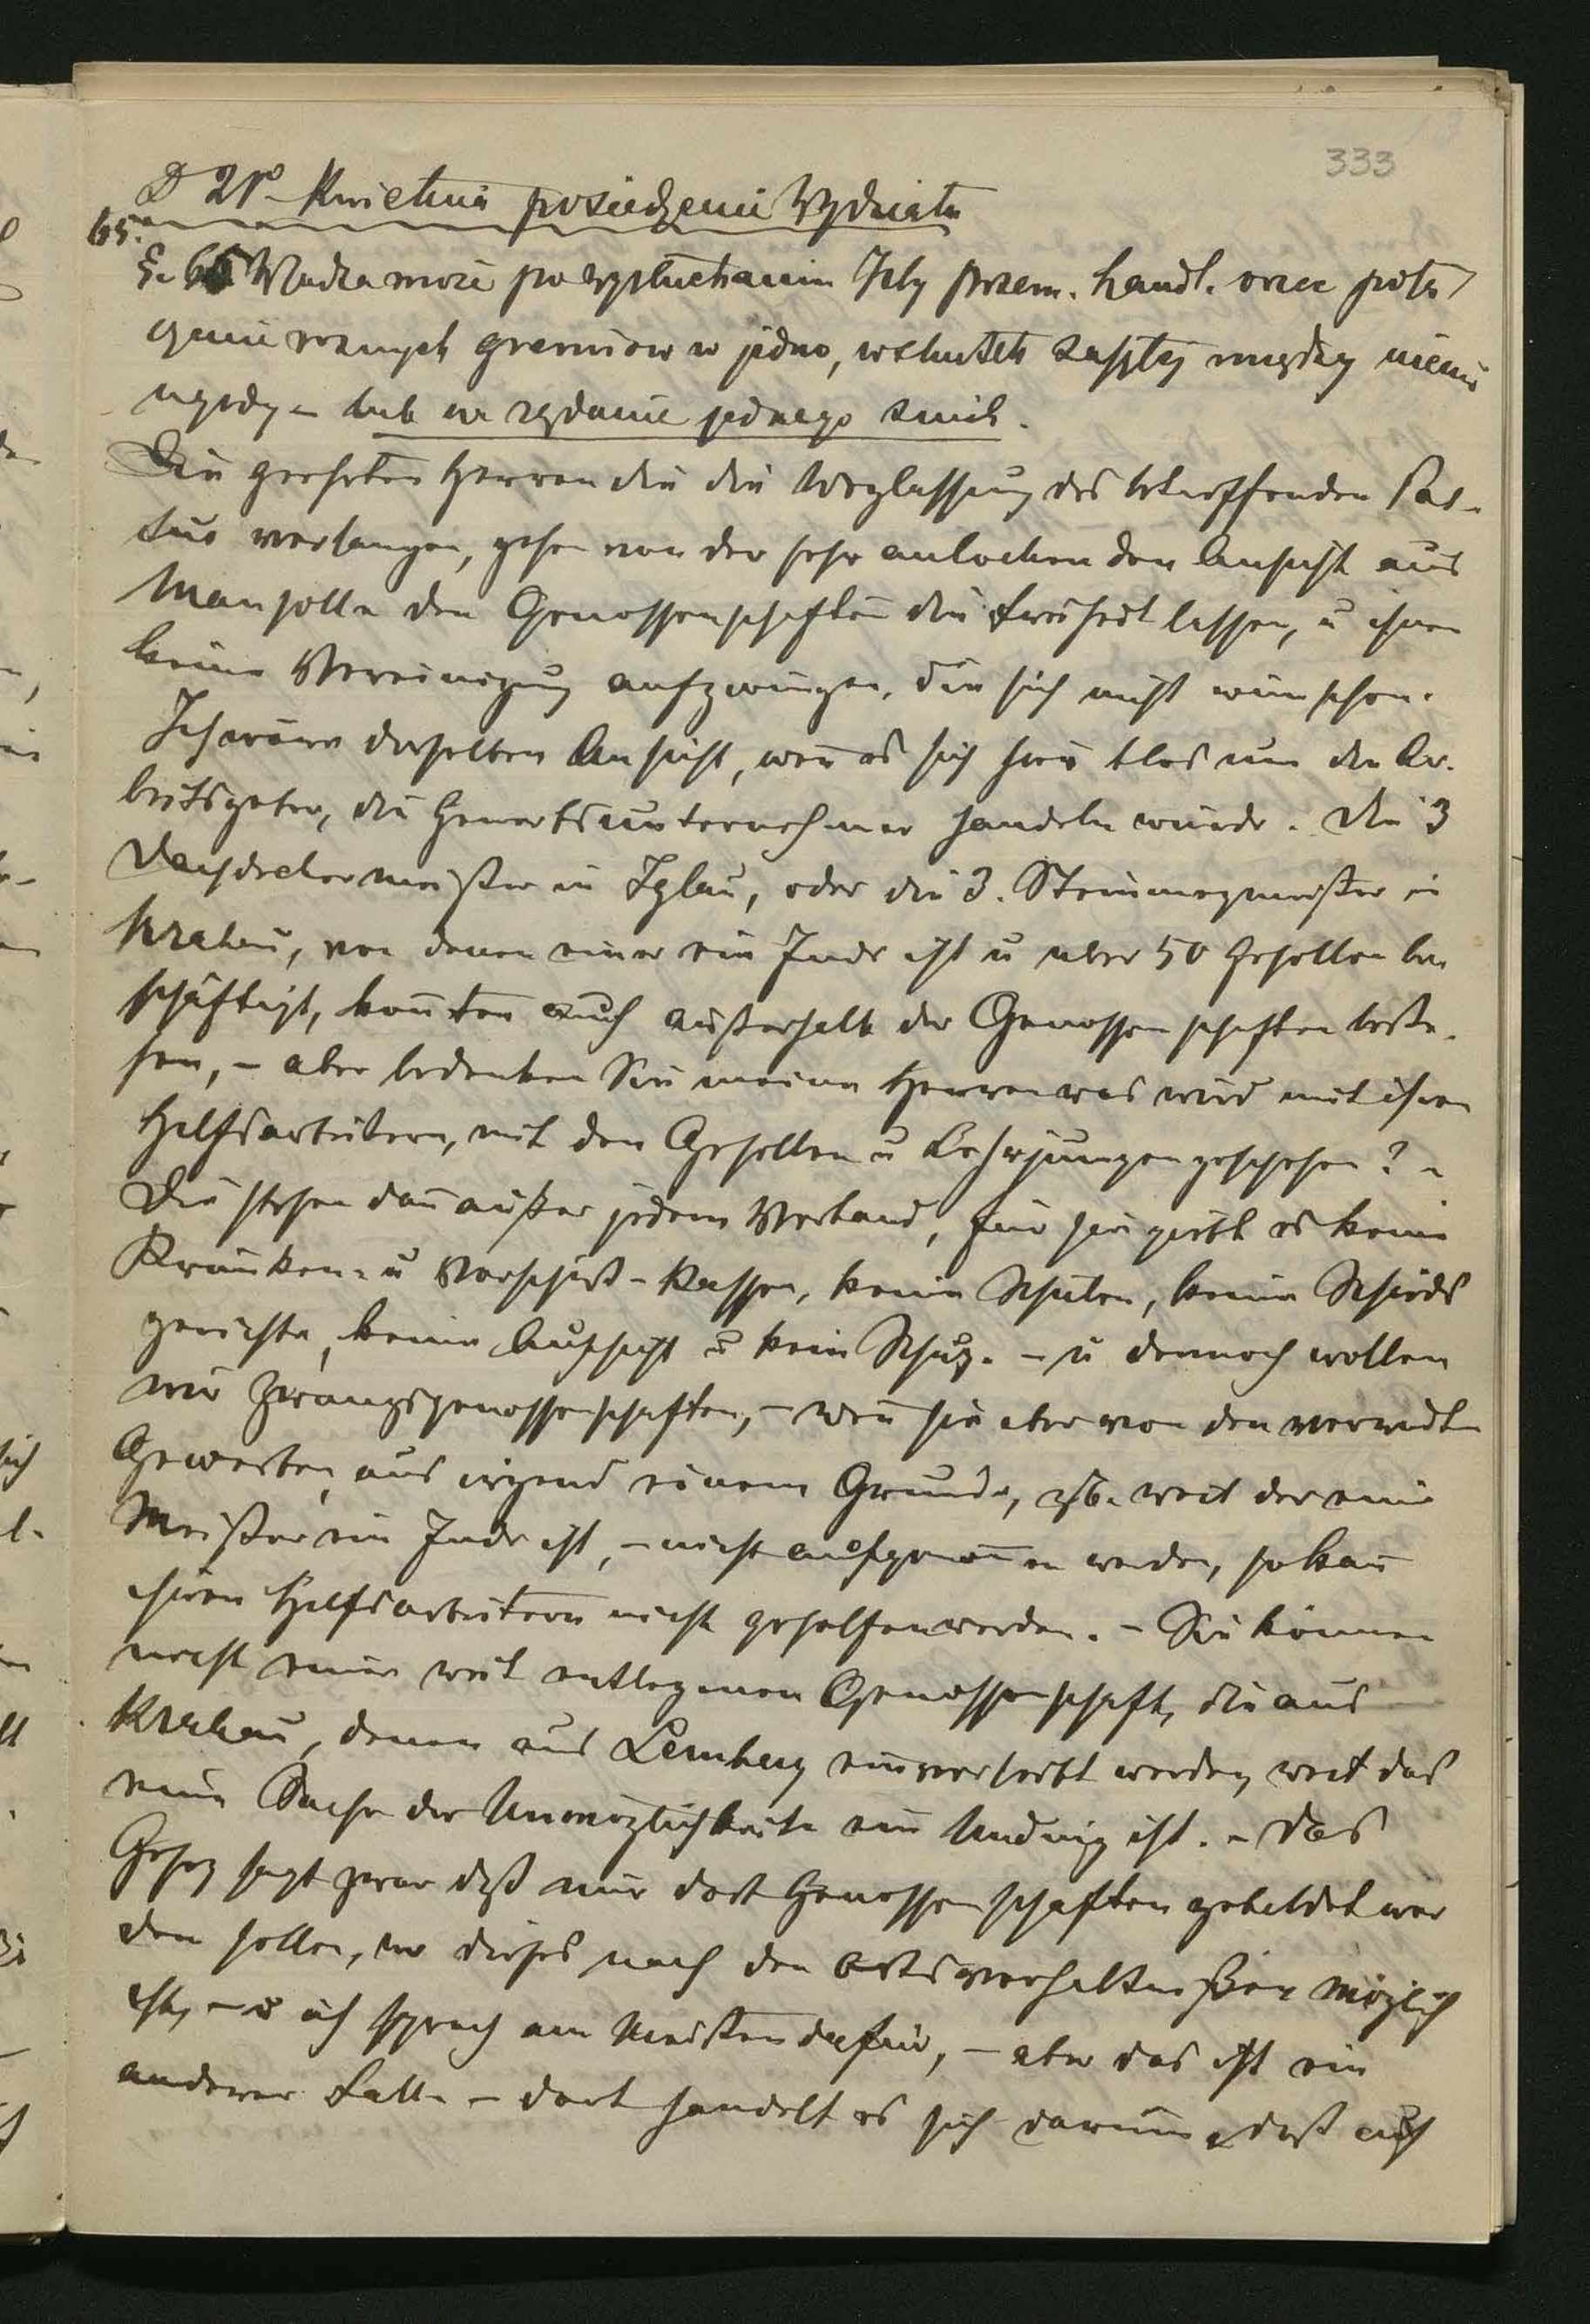 333
D 21º Kwietnia posiedzenie Wydziału
65.
§. 65 Władza może po wysłuchaniu Izby przem. handl. orzec połą
czenie roznych gremiow w jedno, wskutek zaszłej między niemi
ugody – lub na rządanie jednego z nich.
Die geehrten Herren die die Weglassung des betreffenden Pas-
sus verlangen, gehen von der sehr anlockenden Ansicht aus
Man solle den Genossenschaften die Freiheit lassen, u ihnen
keine Vereinigung aufzwingen, die sich nicht wünschen.
Ich wäre derselben Ansicht, wen̄ es sich hier blos um die Ar-
beitsgeber, die Gewerbsunternehmer handeln würde. Die 3
Dachdeckermeister in Iglau, oder die 3. Steinmezmeister in
Krakau, von denen einer ein Jude ist u über 50 Gesellen be
schäftigt, kön̄ten auch außerhalb der Genossenschaften beste-
hen, – aber bedenken Sie meine Herren was wird mit ihren
Hilfsarbeitern, mit den Gesellen u Lehrjungen geschehen? –
Die stehen dan̄ außer jedem Verband, für sie giebt es keine
Kranken- u Vorschuß-Kassen, keine Schulen, keine Schieds
gerichte, keine Aufsicht u kein Schuz. – u dennoch wollen
wir Zwangsgenossenschaften, – wen̄ sie aber von den verwandten
Gewerben, aus irgend einem Grunde, zB. weil der eine
Meister ein Jude ist, – nicht aufgenom̄en werden, so kan̄
ihren Hilfsarbeitern nicht geholfen werden. – Sie können
nicht einer weit entlegenen Genossenschaft, die aus
Krakau, denen aus Lemberg einverleibt werden, weil das
eine Sache der Unmöglichkeit ein Unding ist. – Das
Gesez sagt zwar daß nur dort Genossenschaften gebildet wer
den sollen, wo dieses nach den Ortsverhältnißen möglich
ist, – u ich sprach am Meisten dafür, – aber das ist ein
anderer Fall – dort handelt es sich darum, daß auch